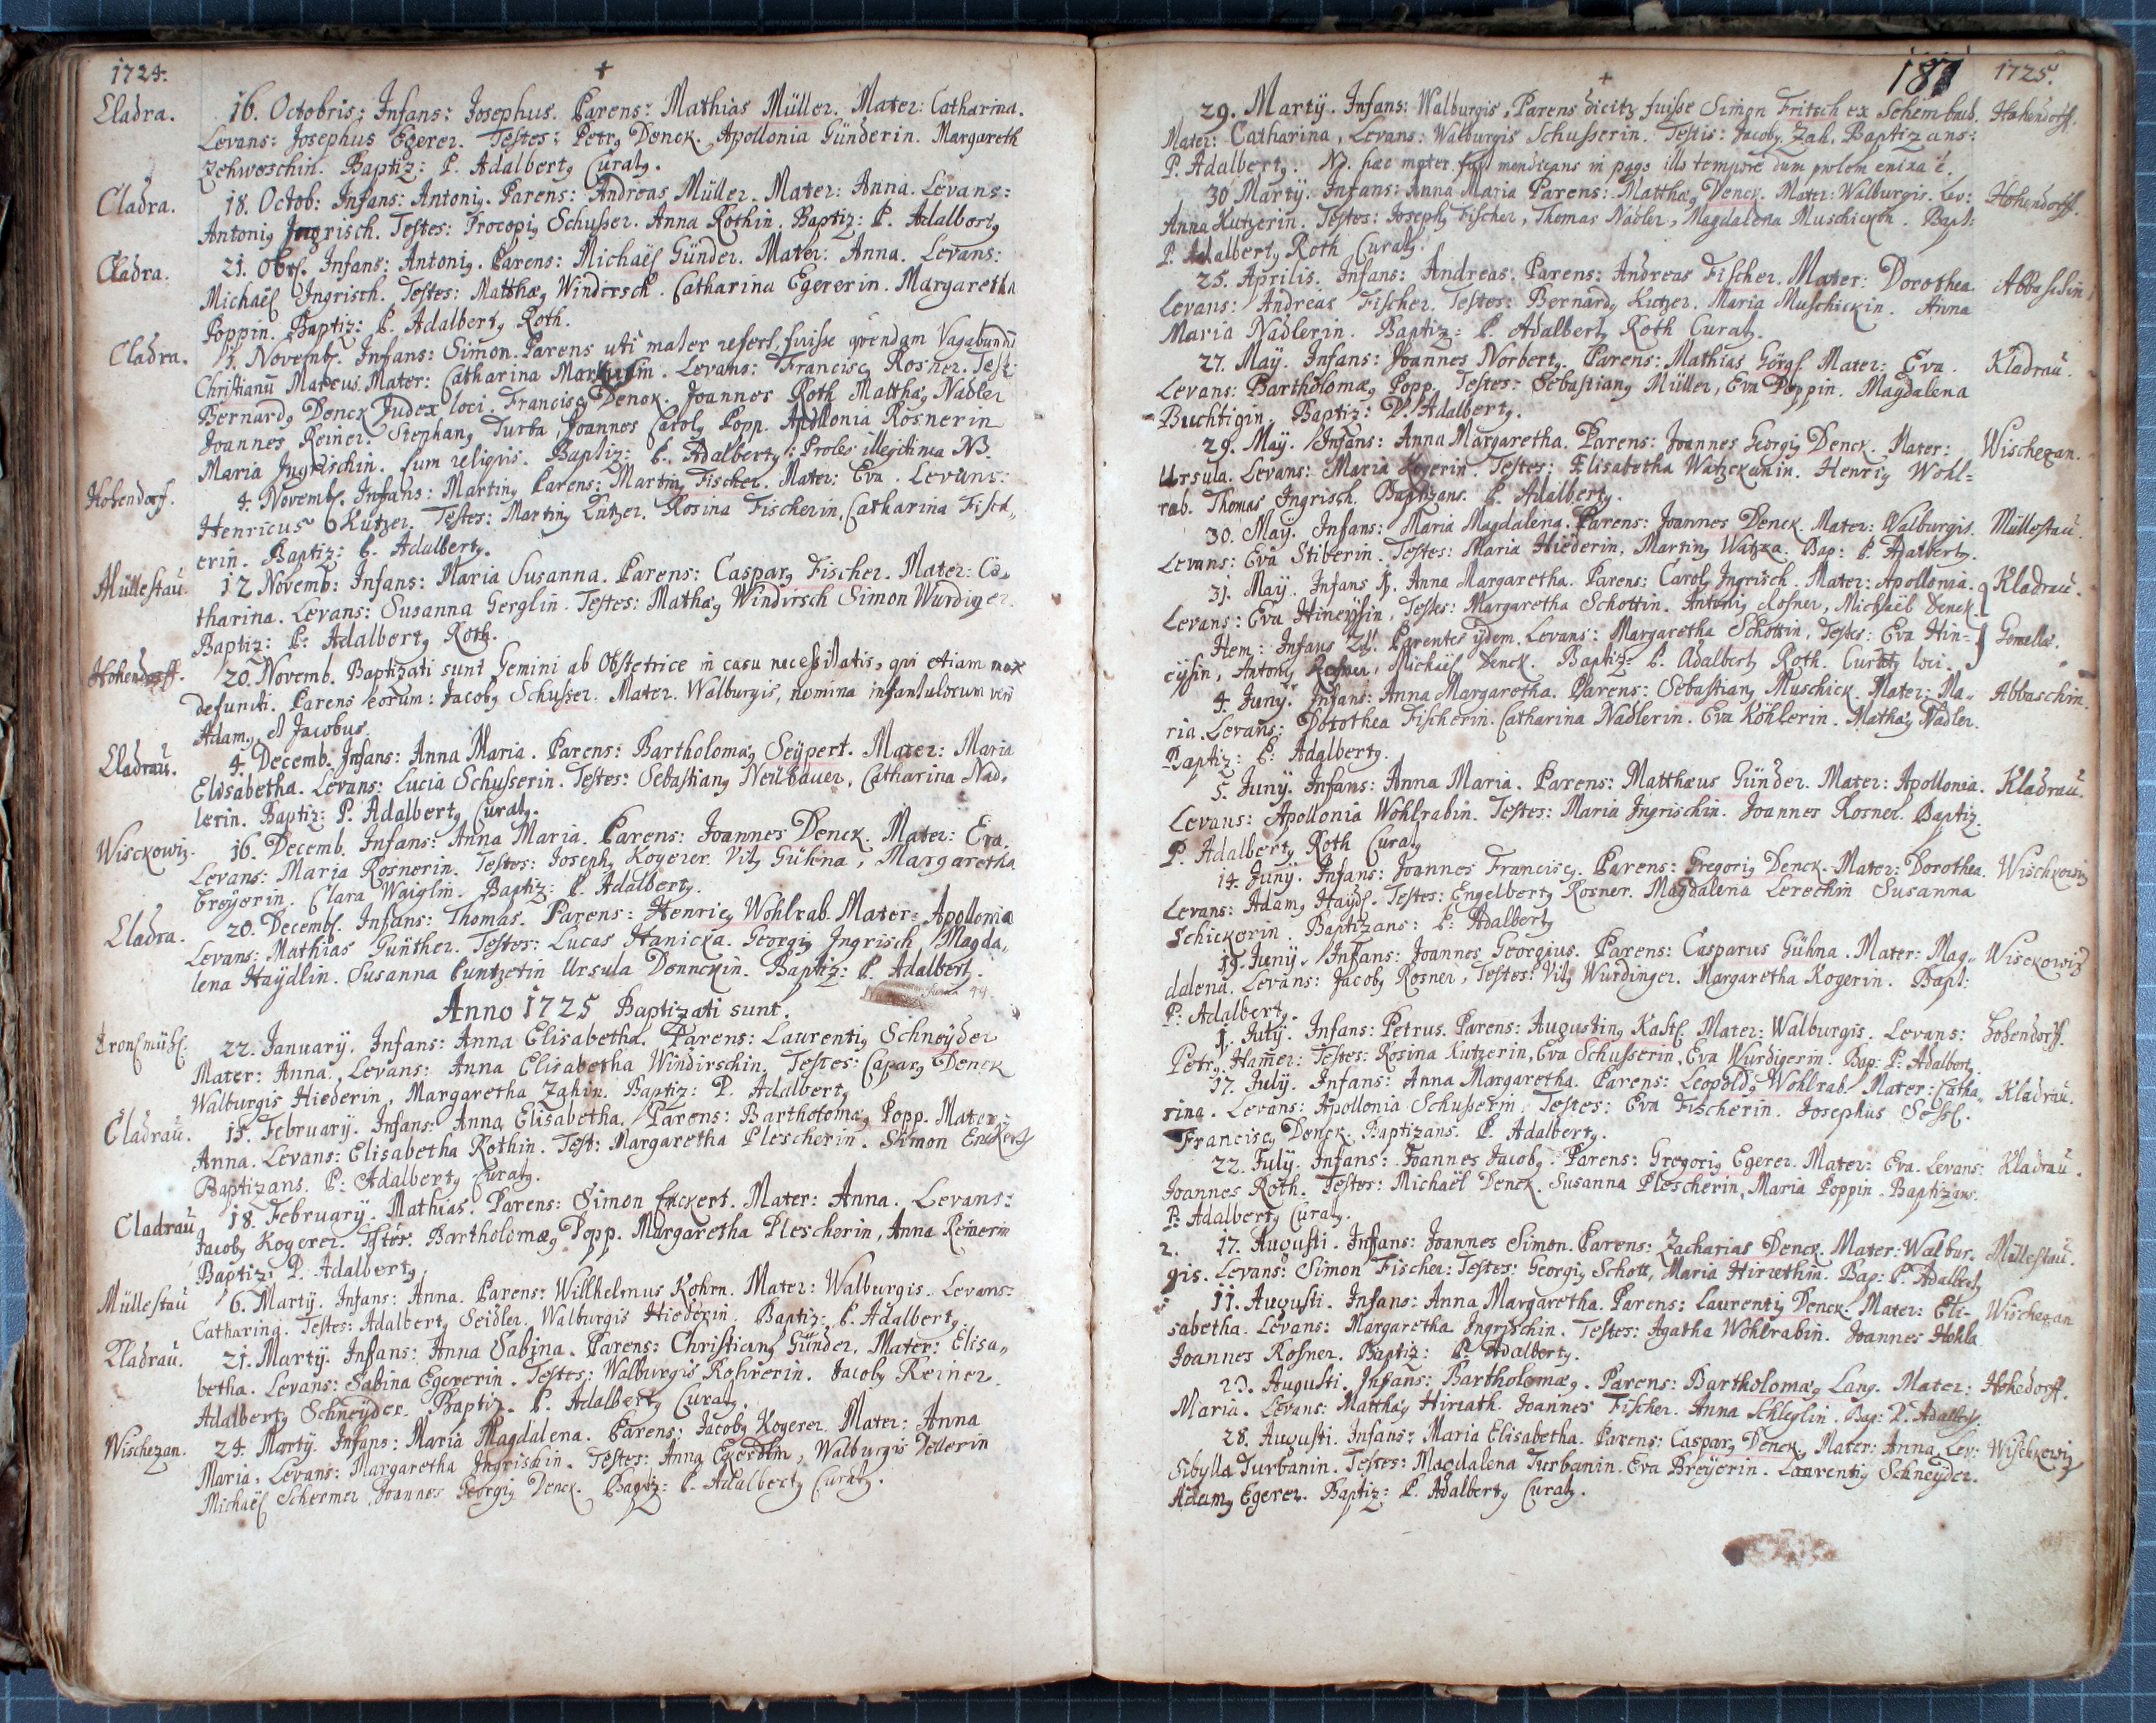 1724.
+
Cladra. 16. Octobris: Infans: Josephus. Parens: Mathias Müller. Mater: Catharina.
Levans: Josephus Egerer. Testes: Petrꝰ Denck. Apollonia Günderin. Margareth
Baptiz: P. Adalbertꝰ Curatꝰ.
Cladra. 18. Octob: Infans: Antoniꝰ. Parens: Andreas Müller. Mater: Anna. Levans:
Antoniꝰ Ingrisch. Testes: Procopiꝰ Schusser. Anna Rothin. Baptiz: P. Adalbertꝰ
Cladra. 21. Infans: Antoniꝰ. Parens: Michaël Günder. Mater: Anna. Levans:
Michaël Ingrisch. Testes: Matthæꝰ Windirsch. Catharina Egererin. Margaretha
Poppin. Baptiz: P. Adalbertꝰ Roth.
Cladra. 3. Novemb. Infans: Simon. Parens uti mater refert, fuisse quendam Vagabundū
Christianū Mater: Catharina Levans: Franciscꝰ Rosner. Test:
Bernardꝰ Denck Judex loci. Franciscꝰ Denck. Joannes Roth. Matthæꝰ Nadler
Joannes Reiner. Stephanꝰ Turba, Joannes Carolꝰ Popp. Apollonia Rosnerin
Maria Ingrischin. cum reliquis. Baptiz: P. Adalbertꝰ: Proles illegitima NB.
Hohendorf. 4. Novemb. Infans: Martinꝰ Parens: Martinꝰ Fischer. Mater: Eva. Levans:
Henricus Kutzer. Testes: Martinꝰ Kutzer. Rosina Fischerin, Catharina Fisch„
erin. Baptiz: P. Adalbertꝰ.
Müllestau. 12 Novemb: Infans: Maria Susanna. Parens: Casparꝰ Fischer. Mater: Ca„
tharina. Levans: Susanna Gerglin. Testes: Mathæꝰ Windirsch Simon Wurdiger.
Baptiz: P: Adalbertꝰ Roth.
Hohendorff. 20. Novemb. Baptizati sunt Gemini ab Obstetrice in casu necessitatis, qui etiam mox
defuncti. Parens eorum: Jacobꝰ Schusser. Mater. Walburgis, nomina infantulorum verò
Adamꝰ, et Jacobus.
Cladrau. 4. Decemb. Infans: Anna Maria. Parens: Bartholomæꝰ Seÿpert. Mater: Maria
Elisabetha. Levans: Lucia Schusserin. Testes: Sebastianꝰ Neübauer, Catharina Nad„
lerin. Baptiz: P. Adalbertꝰ Curatꝰ.
Wisckowiz. 16. Decemb. Infans: Anna Maria. Parens: Joannes Denck. Mater: Eva.
Levans: Maria Rosnerin. Testes: Josephꝰ Kogerer. Vitꝰ Gühna, Margaretha
Breÿerin. Clara Waiglin. Baptiz: P. Adalbertꝰ.
Cladra. 20. Decemb. Infans: Thomas. Parens: Henricꝰ Wohlrab. Mater: Apollonia
Levans: Mathias Günther. Testes: Lucas Hanicka. Georgiꝰ Ingrisch, Magda„
lena Haÿdlin. Susanna Ursula Denckin. Baptiz: P. Adalbertꝰ.
Anno 1725 Baptizati sunt.
22. Januarÿ. Infans: Anna Elisabetha. Parens: Laurentiꝰ Schneÿder
Mater: Anna. Levans: Anna Elisabetha Windirschin. Testes: Casparꝰ Denck
Walburgis Hiederin, Margaretha Zahin. Baptiz: P. Adalbertꝰ
Cladrau. 13. Februarÿ. Infans: Anna Elisabetha. Parens: Bartholomæꝰ Popp. Mater:
Anna. Levans: Elisabetha Rothin. Test: Margaretha Plescherin. Simon Enckert
Baptizans. P: Adalbertꝰ Curatꝰ.
Cladrau 18. Februarÿ. Mathias. Parens: Simon Enckert. Mater: Anna. Levans:
Jacobꝰ Kogerer. Testes. Bartholomæꝰ Popp. Margaretha Plescherin, Anna Reinerin
Baptiz: P. Adalbertꝰ
Müllestau 6. Martÿ. Infans: Anna. Parens: Willhelmus Kohrn. Mater: Walburgis. Levans:
Catharina. Testes: Adalbertꝰ Seidler. Walburgis Hiederin. Baptiz: P. Adalbertꝰ.
Cladrau. 21. Martÿ. Infans: Anna Sabina. Parens: Christianꝰ Günder. Mater: Elisa„
betha. Levans: Sabina Egererin. Testes: Walburgis Rohrerin. Jacobꝰ Reiner.
Adalbertꝰ Schneÿder. Baptiz. P. Adalbertꝰ Curatꝰ.
Wischezan. 24. Martÿ. Infans: Maria Magdalena. Parens: Jacobꝰ Kogerer. Mater: Anna
Maria. Levans: Margaretha Ingrischin. Testes: Anna Walburgis
Michaël Schermer, Joannes Georgiꝰ Denck. Baptiz: P. Adalbertꝰ Curatꝰ.
+
187 1725.
29. Martÿ. Infans: Walburgis, Parens dicitꝰ fuisse Simon Fritsch ex Hohendorff.
Mater: Catharina, Levans: Walburgis Schusserin. Testis: Jacobꝰ Zah. Baptizans:
P. Adalbertꝰ. NB. hæc mater fuit mendicans in pago illo tempore dum prolem enixa ē.
30 Martÿ. Infans: Anna Maria Parens: Matthæꝰ Denck. Mater: Walburgis. Lev: Hohendorff.
Anna Kutzerin. Testes: Josephꝰ Fischer, Thomas Nadler, Magdalena Muschickin. Bapt:
P. Adalbertꝰ Roth Curatꝰ.
25. Aprilis. Infans: Andreas. Parens: Andreas Fischer. Mater: Dorothea. Abbaschin
Levans: Andreas Fischer. Testes: Bernardꝰ Kutzer. Maria Muschickin. Anna
Maria Nadlerin. Baptiz: P. Adalbertꝰ Roth Curatꝰ.
27. Maÿ. Infans: Joannes Norbertꝰ. Parens: Mathias Görgl. Mater: Eva. Kladrau.
Levans: Bartholomæꝰ Popp. Testes: Sebastianꝰ Müller, Eva Poppin. Magdalena
Buchtigin. Baptiz: P. Adalbertꝰ.
29. Maÿ. Infans: Anna Margaretha. Parens: Joannes Georgiꝰ Denck. Mater: Wischezan.
Ursula. Levans: Maria Kogerin. Testes: Elisabetha Watzckanin. Henricꝰ Wohl=
rab. Thomas Ingrisch. Baptizans. P. Adalbertꝰ.
30. Maÿ. Infans: Maria Magdalena. Parens: Joannes Denck. Mater: Walburgis. Müllestau.
Levans: Eva Stiberin. Testes: Maria Hiederin, Martinꝰ Watzka. Bap: P. Adalbertꝰ.
31. Maÿ. Infans 1. Anna Margaretha. Parens: Carolꝰ Ingrisch. Mater: Apollonia. Kladrau.
Levans: Eva Hineÿsin, Testes: Margaretha Schottin. Antoniꝰ Rosner, Michaël Denck.
Item: Infans Parentes ijdem. Levans: Margaretha Schottin, Testes: Eva Hin= Gemellæ.
eÿsin, Antoniꝰ Rosner, Michaël Denck. Baptiz: P. Adalbertꝰ Roth. Curatꝰ loci.
4. Junÿ. Infans: Anna Margaretha. Parens: Sebastianꝰ Muschick. Mater: Ma„ Abbaschin.
ria. Levans: Dorothea Fischerin. Catharina Nadlerin. Eva Köhlerin. Mathæꝰ Nadler.
Baptiz: P. Adalbertꝰ.
5. Junÿ. Infans: Anna Maria. Parens: Matthæus Günder. Mater: Apollonia. Kladrau.
Levans: Apollonia Wohlrabin. Testes: Maria Ingrischin. Joannes Rosner. Baptiz.
P. Adalbertꝰ Roth Curatꝰ
14. Junÿ. Infans: Joannes Franciscꝰ. Parens: Gregoriꝰ Denck. Mater: Dorothea. Wischkowiz
Levans: Adamꝰ Haÿdl. Testes: Engelbertꝰ Rosner. Magdalena Lerechin Susanna
Schickerin. Baptizans: P: Adalbertꝰ
Junÿ. Infans: Joannes Georgius. Parens: Casparus Gühna. Mater: Mag„ Wisckowiz
dalena. Levans: Jacobꝰ Rosner, Testes: Vitꝰ Würdinger. Margaretha Kogerin. Bapt:
P: Adalbertꝰ.
1. Julÿ. Infans: Petrus. Parens: Augustinꝰ Kastl. Mater: Walburgis. Levans: Hohendorff.
Petrꝰ Ham̄er: Testes: Rosina Kutzerin, Eva Schusserin, Eva Wurdigerin. Bap: P: Adalbertꝰ.
17. Julÿ. Infans: Anna Margaretha. Parens: Leopoldꝰ Wohlrab. Mater: Catha„ Kladrau.
rina. Levans: Apollonia Schusserin. Testes: Eva Fischerin. Josephus
Franciscꝰ Denck. Baptizans. P. Adalbertꝰ.
22. Julÿ. Infans: Joannes Jacobꝰ. Parens: Gregoriꝰ Egerer. Mater: Eva. Levans: Kladrau.
Joannes Roth. Testes: Michaël Denck. Susanna Plescherin, Maria Poppin. Baptizans.
P: Adalbertꝰ Curatꝰ.
2. 17. Augusti. Infans: Joannes Simon. Parens: Zacharias Denck. Mater: Walbur„ Müllestau.
gis. Levans: Simon Fischer: Testes: Georgiꝰ Schott, Maria Bap: P. Adalbertꝰ
11. Augusti. Infans: Anna Margaretha. Parens: Laurentiꝰ Denck. Mater: Eli- Wischezan
sabetha. Levans: Margaretha Ingrischin. Testes: Agatha Wohlrabin. Joannes Hohla
Joannes Rosner. Baptiz: P. Adalbertꝰ.
23. Augusti. Infans: Bartholomæꝰ. Parens: Bartholomæꝰ Lang. Mater: Hohedorff.
Maria. Levans: Matthæꝰ Hirrath. Joannes Fischer. Anna Schleglin. Bap: P. Adalbertꝰ.
28. Augusti. Infans: Maria Elisabetha. Parens: Casparꝰ Denck. Mater: Anna. Lev: Wischkowiz
Sibylla Turbanin. Testes: Magdalena Turbanin. Eva Breÿerin. Laurentiꝰ Schneÿder.
Adamꝰ Egerer. Baptiz: P. Adalbertꝰ Curatꝰ.